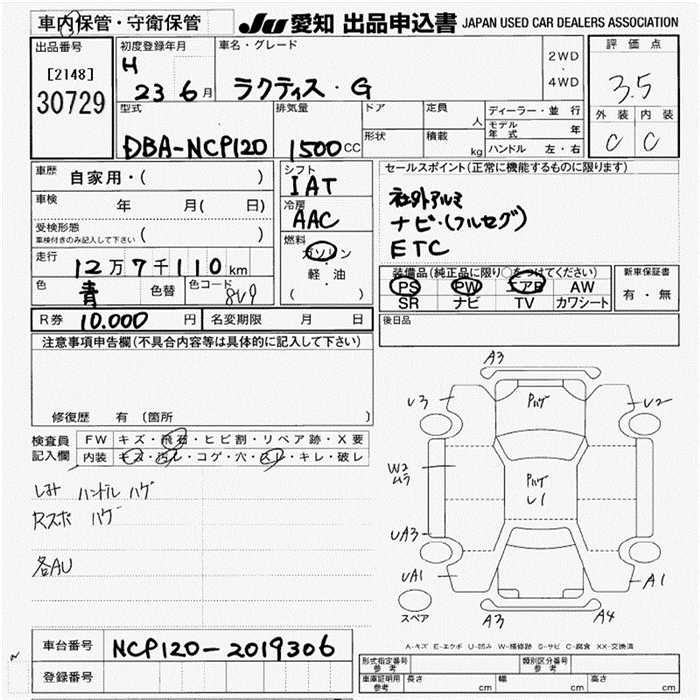 車内保管・守衛保管
JU 愛知 出品申込書 JAPAN USED CAR DEALERS ASSOCIATION
出品番号
[2148]
30729
初度登録年月
H
23 6月
車名・グレード
ラクティス・G
2WD
・
4WD
評価点
3.5
外装 内装
C C
型式
DBA-NCP120
排気量
1500cc
ドア
形状
定員
人
積載
kg
ディーラー・並行
モデル年式 年
ハンドル 左・右
車歴
自家用・( )
車検 年 月( 日)
受検形態
車検付きのみ記入して下さい ( )
走行
12万7千110km
色
青
色替
色コード
8U9
シフト
IAT
冷房
AAC
燃料
ガソリン
・
軽・油
( )
セールスポイント(正常に機能するものに限ります)
社外アルミ
ナビ・(フルセグ)
ETC
装備品(純正品に限り○をつけてください)
PS PW エアB AW
SR ナビ TV カワシート
新車保証書
有・無
R券 10.000 円 名変期限 月 日
後日品
注意事項申告欄(不具合内容等は具体的に記入して下さい)
修復歴 有 〔箇所 〕
検査員記入欄
FW キズ・飛石・ヒビ割・リペア跡・X要
内装 キズ・汚レ・コゲ・穴・スレ・キレ・破レ
しみ ハンドル ハゲ
Rスポ ハゲ
各AU
A3
U3
Pハゲ
U2
W2
ムラ
Pハゲ
U1
UA3
UA1
A1
スペア
A3
A4
A-キズ E-エクボ U-凹み W-補修跡 S-サビ C-腐食 XX-交換済
車台番号
NCP120-2019306
登録番号
型式指定番号
参考
類別区分番号
参考
車庫証明用
参考
長さ cm 幅 cm 高さ cm